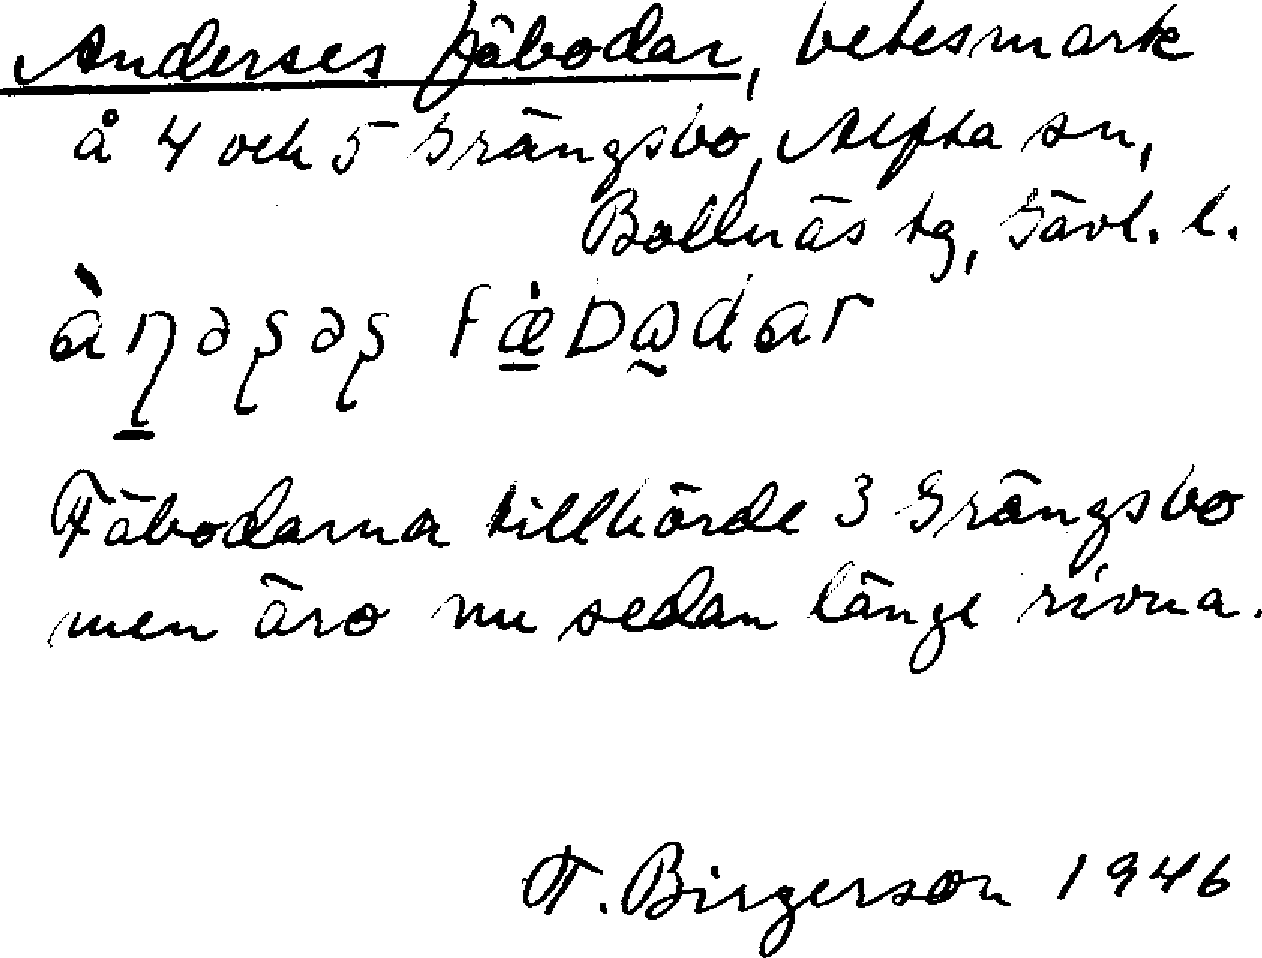 Anderses fäbodar, betesmark
å 4 och 5 Grängsbo, Alfta sn,
Bollnäs tg, Gävl. l.
àn̠əʂəʂ fæ̠̀bɷ̰dar
Fäbodarna tillhörde 3 Grängsbo
men äro nu sedan länge rivna.
T. Birgerson 1946